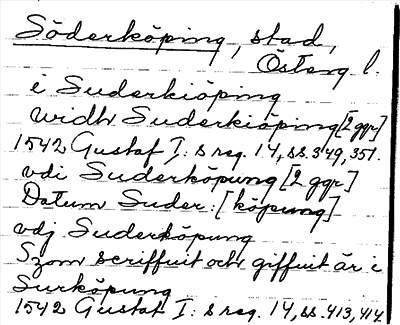 Söderköping, stad,
Österg l.
i Suderkiöping
widh Suderkiöping [2 ggr]
1542 Gustaf I: s reg. 14, ss. 349, 351.
vdi Suderköpung [2 ggr.]
Datum Suder: [köpung]
vdj Suderköpung
Szom scriffuit och giffuit är i
Surköpung
1542 Gustaf I: s reg. 14, ss. 413, 414